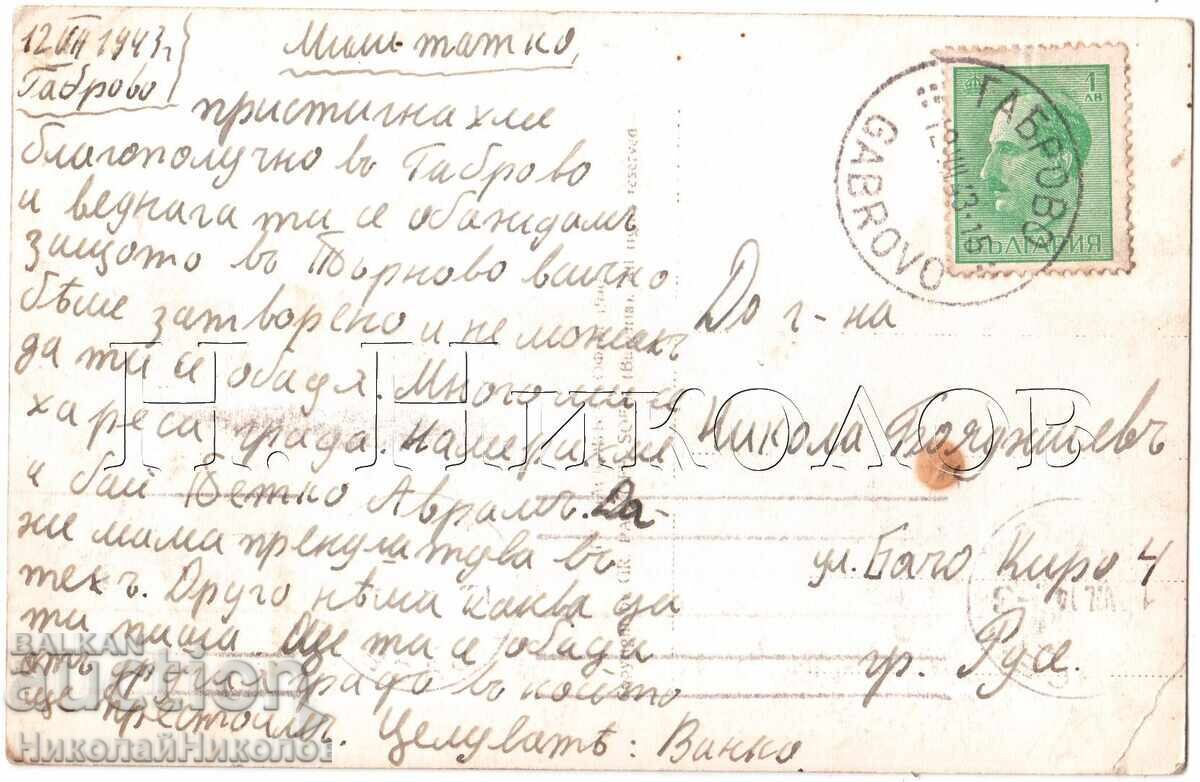 12 VII 1943 г.
Габрово
Мили татко,
пристигнахме
благополучно въ Габрово
и веднага ти се обаждамъ
защото въ Търново
бѣше затворено и не можахъ
да ти се обадя. Много ми се
хареса града. Намерихме
и бай Аврамъ. Да-
же мама въ
техъ. Друго нѣма какво да
ти пиша. Ще ти се обадя
отъ града въ който
ще престоимъ. Целувамъ: Ванко
ГАБРОВО
GABROVO
1 ЛВ
БЪЛГАРИЯ
До г-на
Никола
ул. Бачо Киро 4
гр. Русе.
Н. Николов
BALKAN
auction
НиколайНиколов